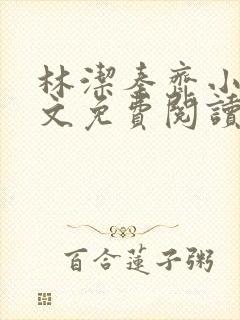 林潔秦齊小
文免費閱讀
百合蓮子粥